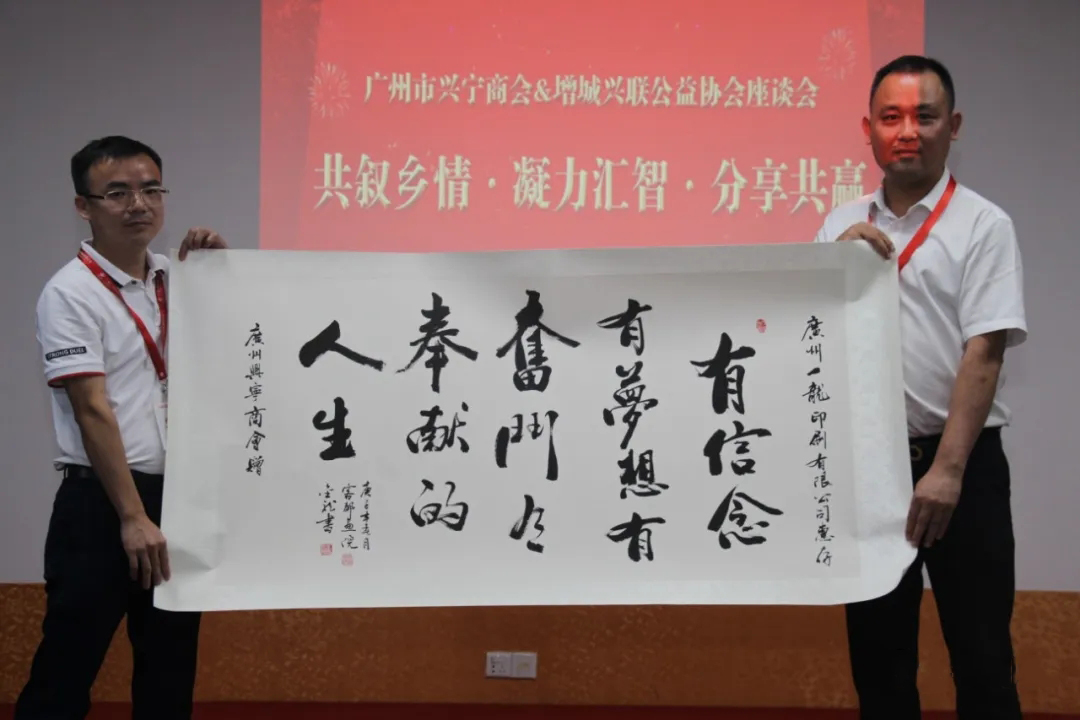 广州市兴宁商会&增城兴联公益协会座谈会
共叙乡情·凝力汇智·分享共赢
廣州一龍印刷有限公司惠存
有信念
有夢想有
奮鬥
奉献的
人生
廣州興寧商會贈